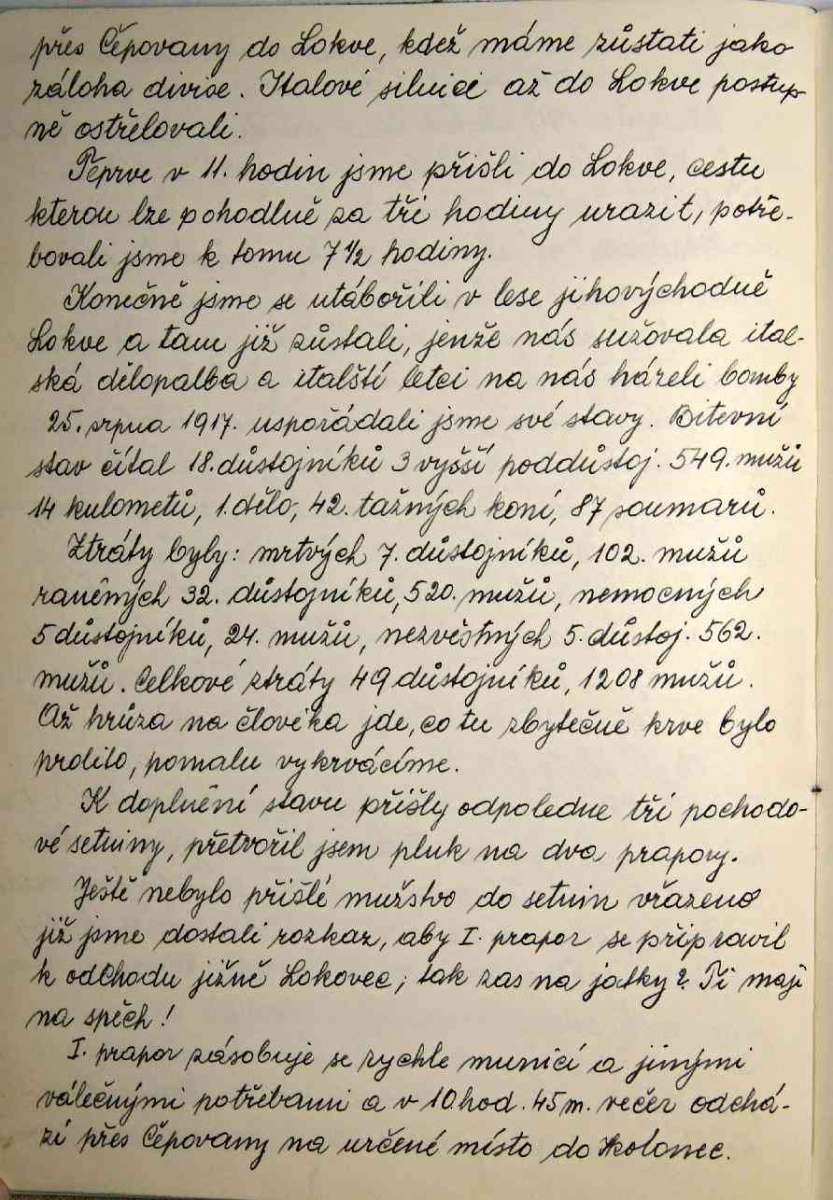 přes Čepovany do Lokve, kdež máme zůstati jako
záloha divise. Italové silnici až do Lokve postup-
ně ostřelovali.
Teprve v 11. hodin jsme přišli do Lokve, cestu
kterou lze pohodlně za tři hodiny urazit, potře-
bovali jsme k tomu 7 1/2 hodiny.
Konečně jsme se utábořili v lese jihovýchodně
Lokve a tam již zůstali, jenže nás sužovala ital-
ská dělopalba a italští letci na nás házeli bomby
25. srpna 1917. uspořádali jsme své stavy. Bitevní
stav čítal 18. důstojníků 3 vyšší poddůstoj. 549. mužů
14 kulometů, 1. dělo, 42. tažných koní, 87 soumarů.
Ztráty byly: mrtvých 7. důstojníků, 102. mužů
raněných 32. důstojníků, 520. mužů, nemocných
5 důstojníků, 24. mužů, nezvěstných 5. důstoj. 562.
mužů. Celkové ztráty 49 důstojníků, 1208 mužů.
Až hrůza na člověka jde, co tu zbytečně krve bylo
prolito, pomalu vykrvácíme.
K doplnění stavu přišly odpoledne tři pochodo-
vé setniny, přetvořil jsem pluk na dva prapory.
Ještě nebylo přišlé mužstvo do setnin vřazeno
již jsme dostali rozkaz, aby I. prapor se připravil
k odchodu jižně Lokovec, tak zas na jatky? Ti mají
na spěch!
I. prapor zásobuje se rychle municí a jinými
válečnými potřebami a v 10 hod. 45 m. večer odchá-
zí přes Čepovany na určené místo do Kolonec.